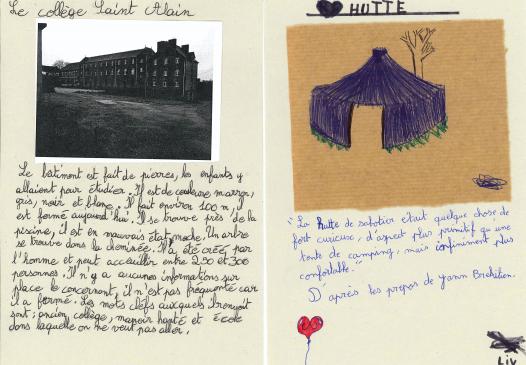 Le collège Saint Alain
Le bâtiment est fait de pierres, les enfants y
allaient pour étudier. Il est de couleur marron,
gris, noir et blanc. Il fait environ 100 m, il
est fermé aujourd'hui. Il se trouve près de la
piscine, il est en mauvais état, moche. Un arbre
se trouve dans la cheminée. Il a été créé par
l'homme et peut accueillir entre 250 et 300
personnes. Il n'y a aucunes informations sur
place le concernant, il n'est pas fréquenté car
il a fermé. Les mots clefs auxquels il renvoit
sont : ancien collège, manoir hanté et école
dans laquelle on ne veut pas aller.
HUTTE
"La hutte de sabotier était quelque chose de
fort curieuse, d'aspect plus primitif qu'une
tente de camping, mais infiniment plus
confortable."
D'après les propos de Yann Brekilien.
LIV